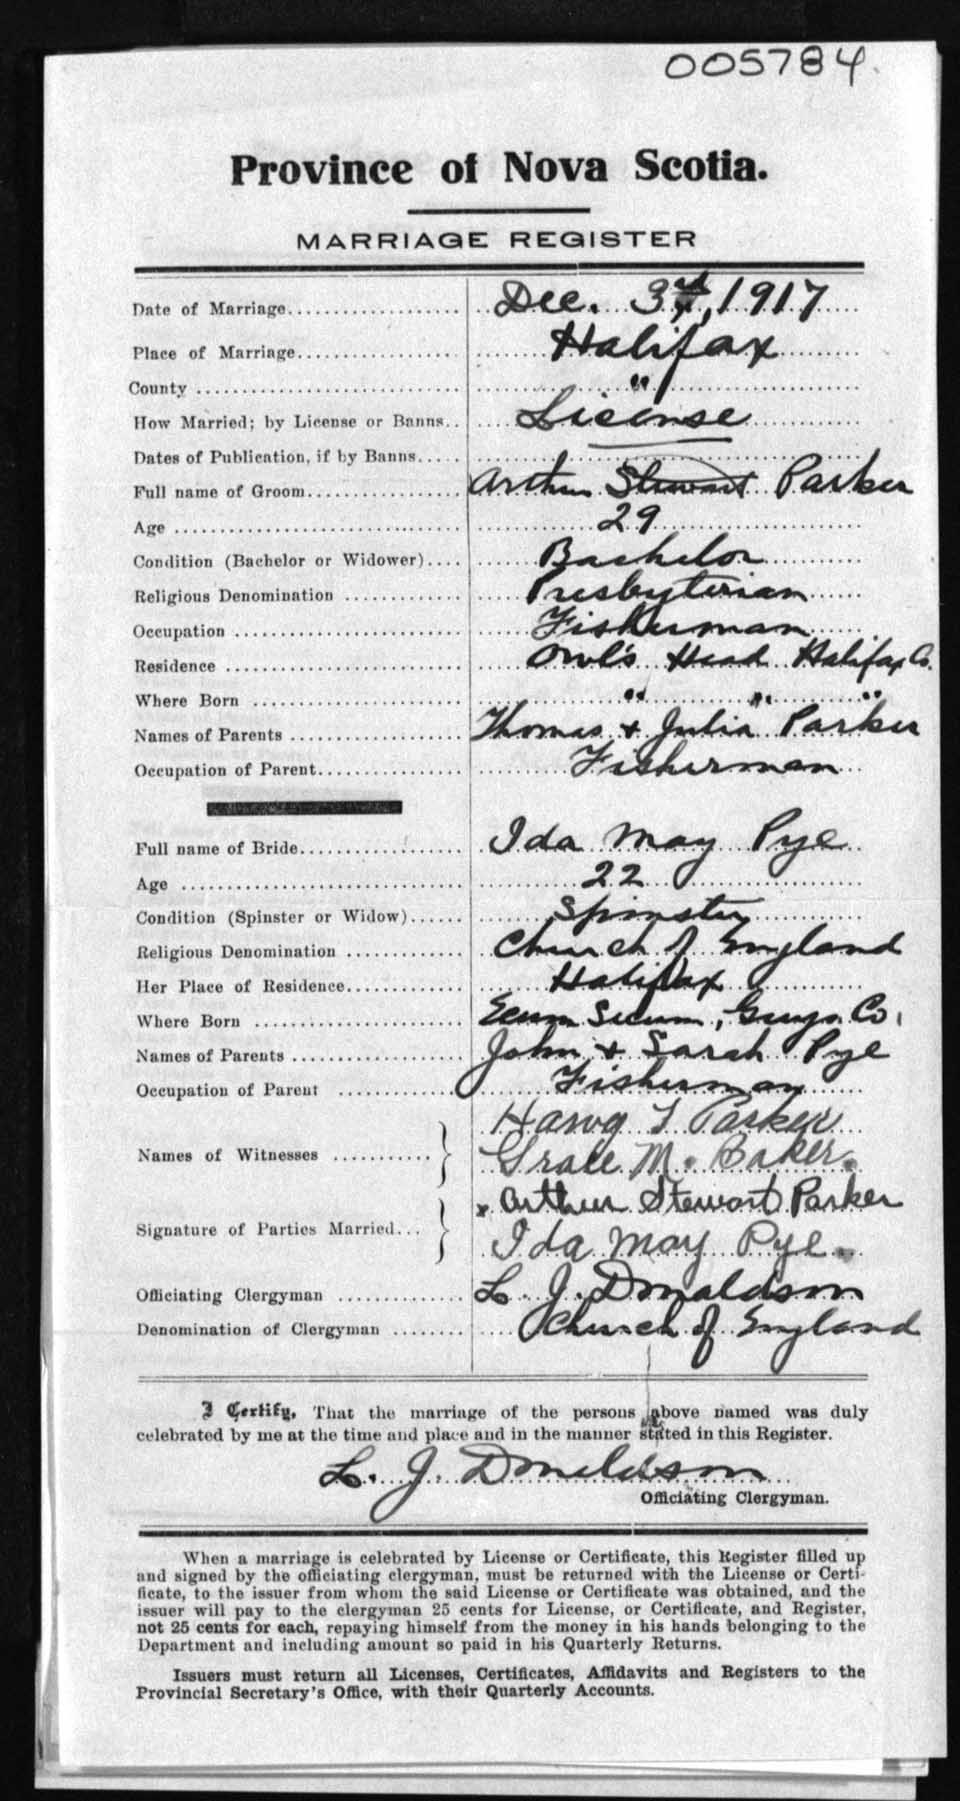 005784.
Province of Nova Scotia.
MARRIAGE REGISTER
Date of Marriage.................... Dec. 3rd, 1917
Place of Marriage.................. Halifax
County .............................. "
How Married; by License or Banns.. License
Dates of Publication, if by Banns.....
Full name of Groom.................. Arthur Stewart Parker
Age ................................ 29
Condition (Bachelor or Widower).... Bachelor
Religious Denomination ............. Presbyterian
Occupation ......................... Fisherman
Residence .......................... Owl's Head Halifax Co.
Where Born ......................... " " "
Names of Parents ................... Thomas + Julia Parker
Occupation of Parent................ Fisherman
Full name of Bride.................. Ida May Pye
Age ................................ 22
Condition (Spinster or Widow)...... Spinster
Religious Denomination ............. Church of England
Her Place of Residence............. Halifax
Where Born ......................... Ecum Secum, Guys. Co.
Names of Parents ................... John + Sarah Pye
Occupation of Parent ............... Fisherman
Parker
Names of Witnesses ...........
Grace M. Baker.
x Arthur Stewart Parker
Signature of Parties Married...
Ida May Pye.
Officiating Clergyman .............. L. J. Donaldson
Denomination of Clergyman ........ Church of England
I Certify, That the marriage of the persons above named was duly
celebrated by me at the time and place and in the manner stated in this Register.
L. J. Donaldson
Officiating Clergyman.
When a marriage is celebrated by License or Certificate, this Register filled up
and signed by the officiating clergyman, must be returned with the License or Certi-
ficate, to the issuer from whom the said License or Certificate was obtained, and the
issuer will pay to the clergyman 25 cents for License, or Certificate, and Register,
not 25 cents for each, repaying himself from the money in his hands belonging to the
Department and including amount so paid in his Quarterly Returns.
Issuers must return all Licenses, Certificates, Affidavits and Registers to the
Provincial Secretary's Office, with their Quarterly Accounts.